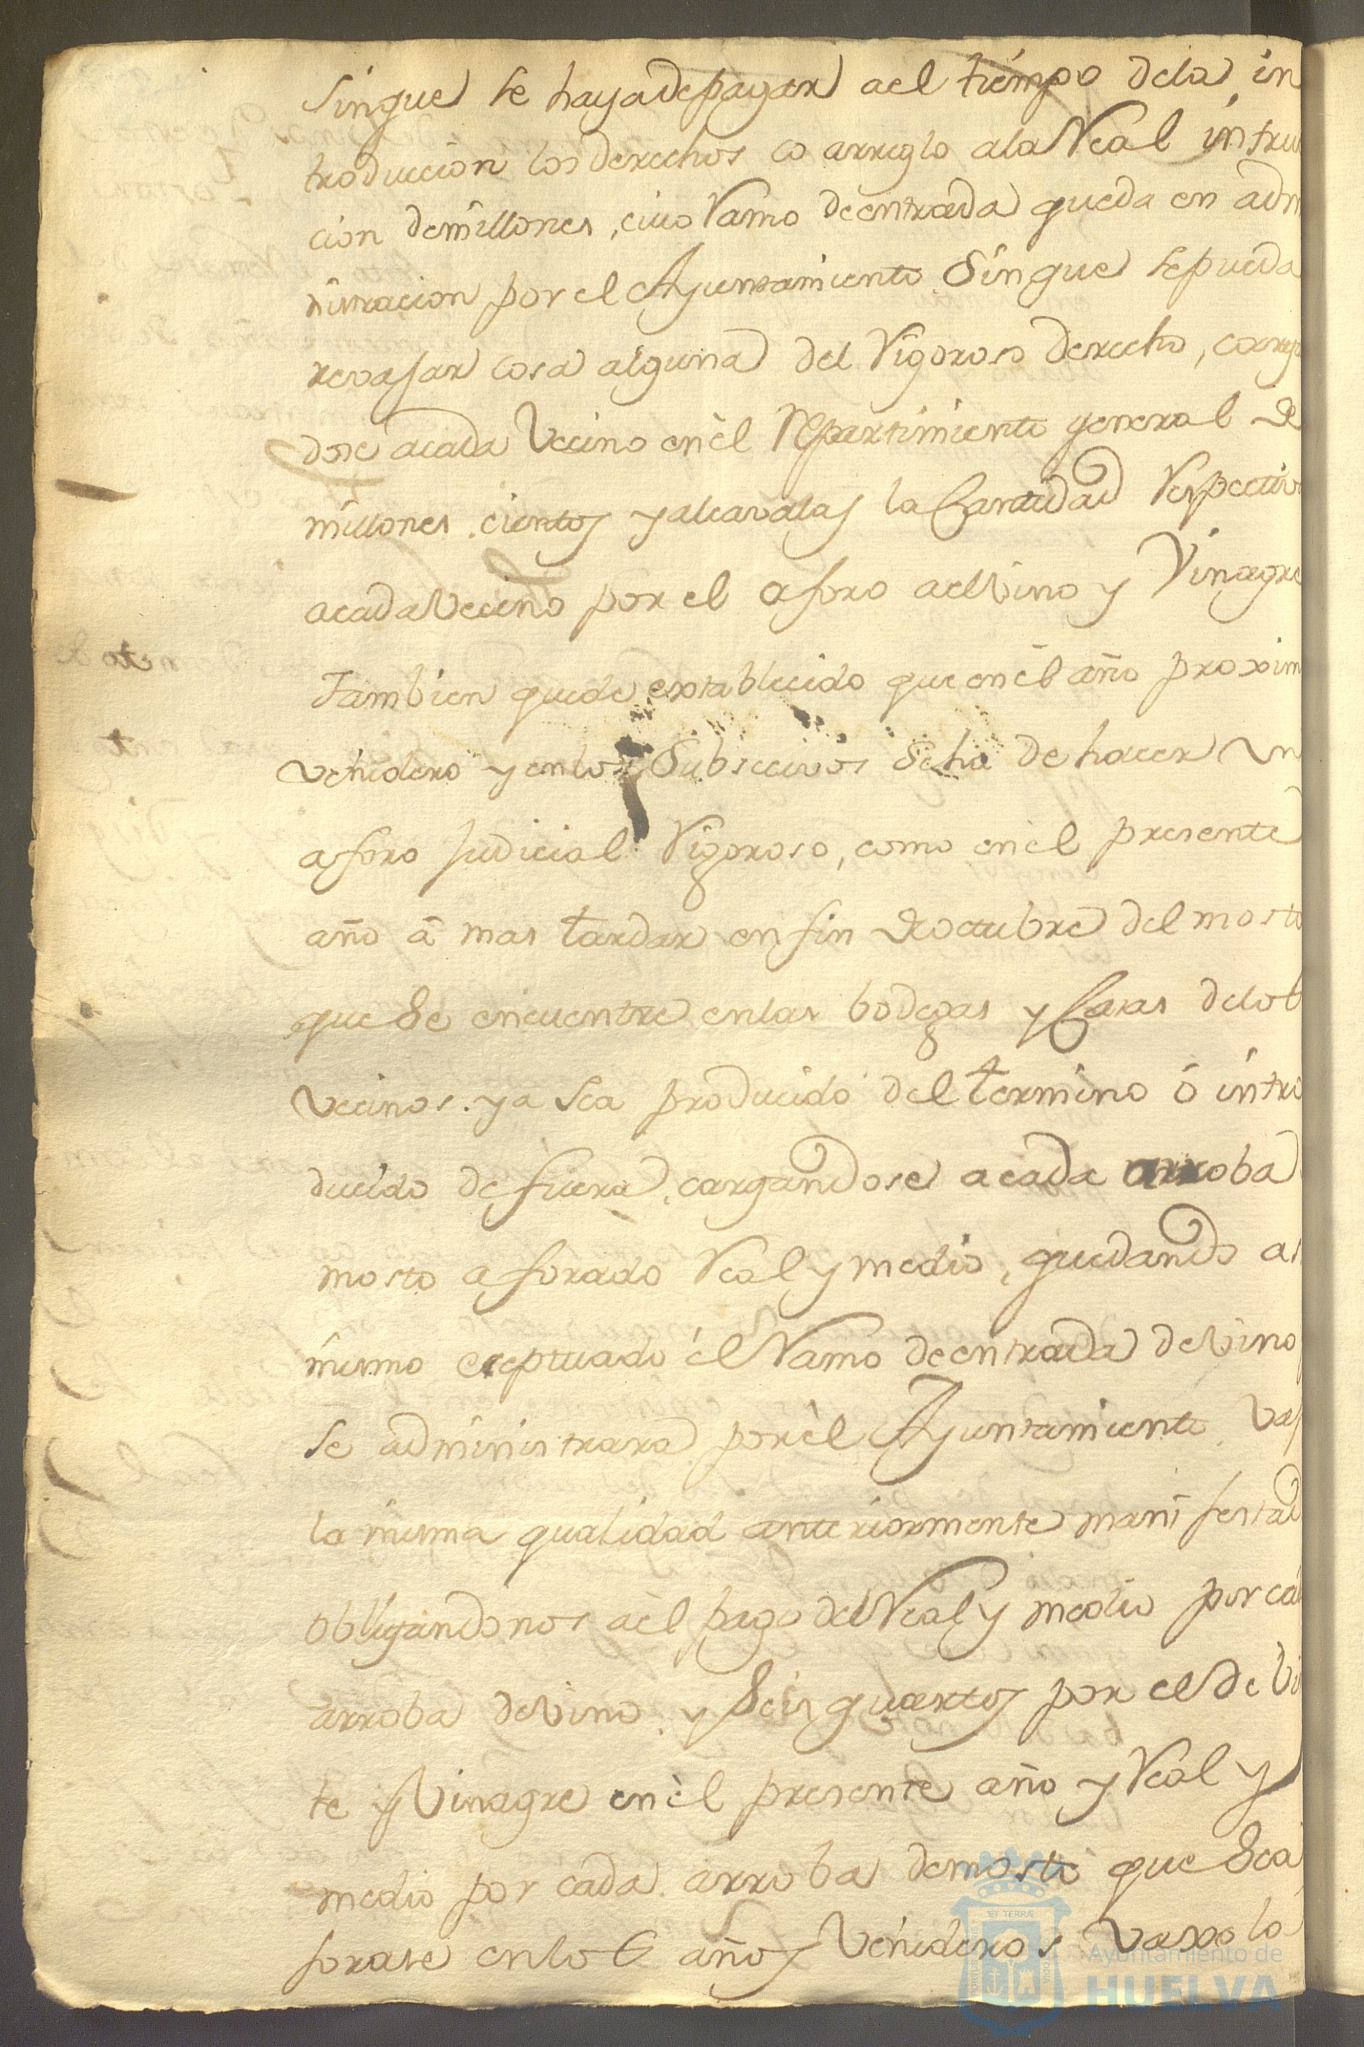 sin que se haya de pagar a el tiempo de la in
troduccion los derechos co arreglo a la Real intruc
cion de millones, cuio Ramo de entrada queda en adm
nistracion por el Ayuntamiento sin que se pueda
revajar cosa alguna del rigoroso derecho, cargn
dose a cada vecino en èl Repartimiento general de
millones, cientos y alcavalas la cantidad respectiva
a cada vecino por el aforo ael vino y vinagre
Tambien quede extablecido que en èl año proximo
venidero y en los subsecivos se ha de hacer un
aforo judicial rigoroso, como en èl presente
año â mas tardar en fin de octubre del mosto
que se encuentre en las bodegas y casas de los
vecinos, ya sea producido del termino ó intro
ducido de fuera, cargandose a cada arroba
mosto aforado real y medio, quedando as
mismo exeptuado èl Ramo de entrada de vino
se administrara por èl Ayuntamiento, vaj
la misma qualidad anteriormente manifestad
obligandonos aèl pago del Real y medio por cad
arroba de vino, y seis quartos por el de vi
te y vinagre en èl presente año y Real y
medio por cada arroba de mosto que sea
forase en lo 6 años venideros vaxo lo
Ayuntamiento de
HUELVA